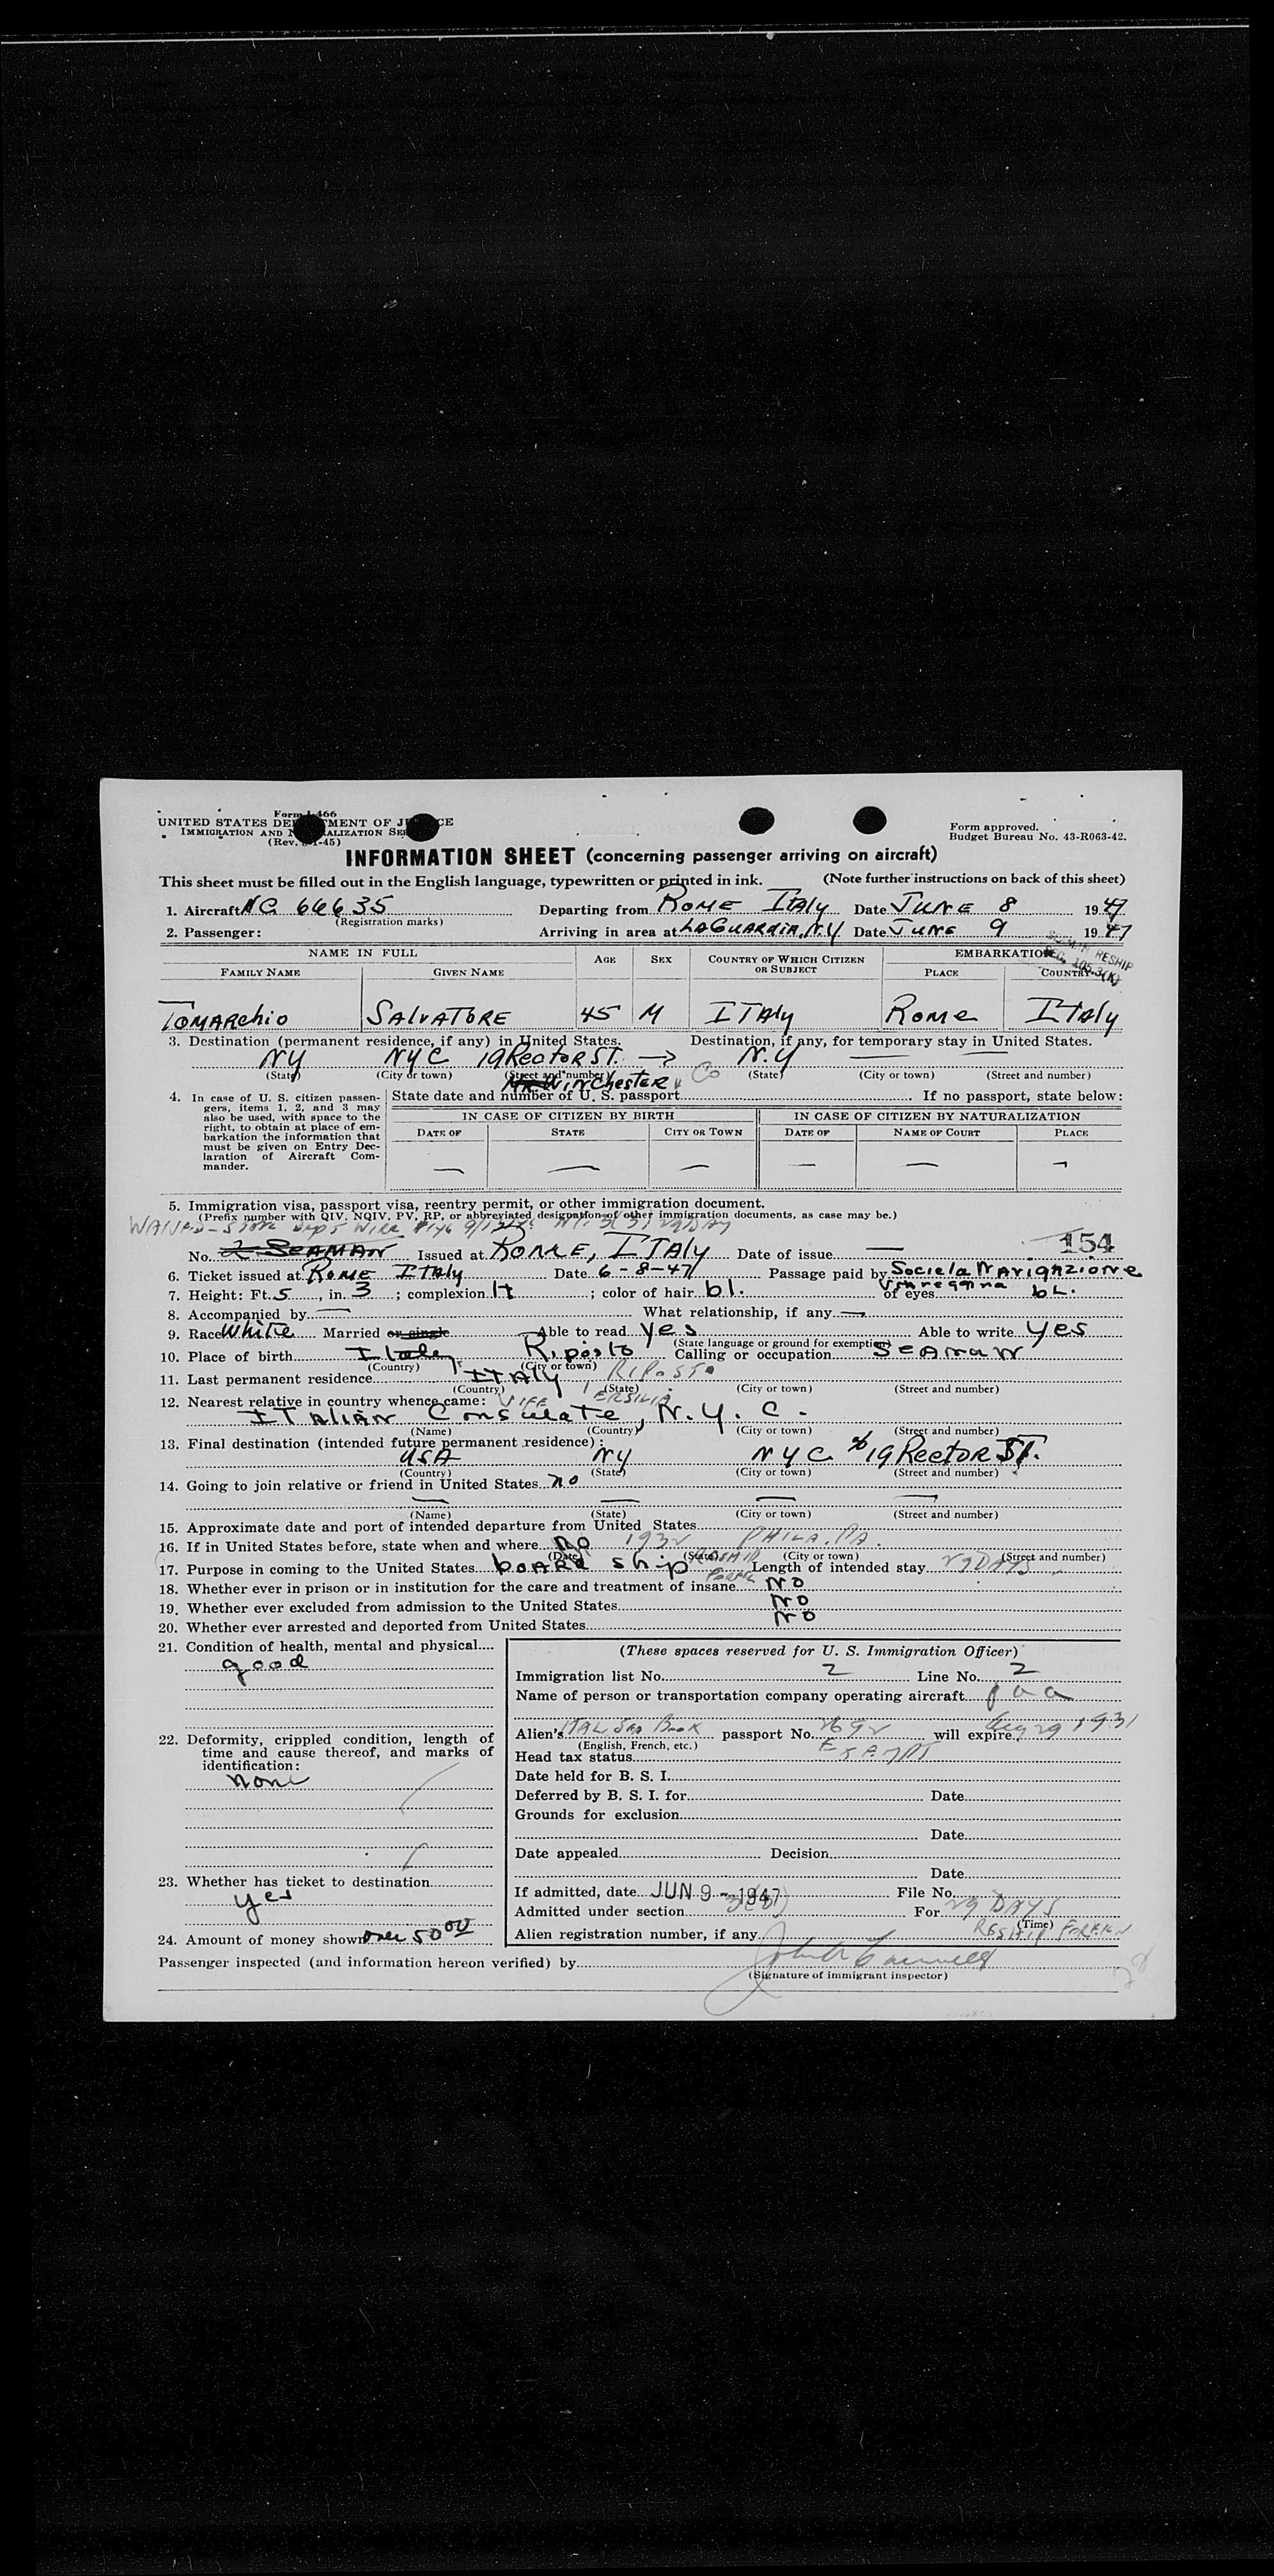 Form I-466
UNITED STATES DEPARTMENT OF JUSTICE
IMMIGRATION AND NATURALIZATION SERVICE
(Rev. -1-45)
Form approved.
Budget Bureau No. 43-R063-42.
INFORMATION SHEET (concerning passenger arriving on aircraft)
This sheet must be filled out in the English language, typewritten or printed in ink. (Note further instructions on back of this sheet)
1. Aircraft NC 66635 Departing from ROME ITALY Date JUNE 8 1947
(Registration marks)
2. Passenger: Arriving in area at LAGUARDIA, N.Y Date JUNE 9 1947
RESHIP
SEC. 105.3(K)
NAME IN FULL AGE SEX COUNTRY OF WHICH CITIZEN OR SUBJECT EMBARKATION
FAMILY NAME GIVEN NAME PLACE COUNTRY
TOMARCHIO SALVATORE 45 M ITALY ROME ITALY
3. Destination (permanent residence, if any) in United States. Destination, if any, for temporary stay in United States.
NY NYC 19 Rector ST. → N.Y — —
(State) (City or town) (Street and number) (State) (City or town) (Street and number)
WINCHESTER Co
4. In case of U. S. citizen passengers, items 1, 2, and 3 may also be used, with space to the right, to obtain at place of embarkation the information that must be given on Entry Declaration of Aircraft Commander.
State date and number of U. S. passport If no passport, state below:
IN CASE OF CITIZEN BY BIRTH IN CASE OF CITIZEN BY NATURALIZATION
DATE OF STATE CITY OR TOWN DATE OF NAME OF COURT PLACE
— — — — — —
5. Immigration visa, passport visa, reentry permit, or other immigration document.
(Prefix number with QIV, NQIV, PV, RP, or abbreviated designation of other immigration documents, as case may be.)
WAIVED - STATE DEPT WIRE
No. 2 SEAMAN Issued at ROME, ITALY Date of issue — 154
6. Ticket issued at Rome ITALY Date 6-8-47 Passage paid by Societa Navigazione
7. Height: Ft. 5, in. 3; complexion lt; color of hair bl. of eyes bL.
8. Accompanied by — What relationship, if any —
9. Race White Married or single Able to read yes Able to write yes
(State language or ground for exemption)
10. Place of birth Italy Riposto Calling or occupation SEAMAN
(Country) (City or town)
11. Last permanent residence ITALY RIPOSTO
(Country) (State) (City or town) (Street and number)
12. Nearest relative in country whence came: WIFE ERSILIA
ITALIAN Consulate, N.Y.C.
(Name) (Country) (City or town) (Street and number)
13. Final destination (intended future permanent residence):
USA NY NYC % 19 Rector ST.
(Country) (State) (City or town) (Street and number)
14. Going to join relative or friend in United States no
— — — —
(Name) (State) (City or town) (Street and number)
15. Approximate date and port of intended departure from United States
16. If in United States before, state when and where NO 1932 PHILA. PA.
(Date) (State) (City or town) (Street and number)
17. Purpose in coming to the United States board ship RESHIP Length of intended stay 29 DAYS
18. Whether ever in prison or in institution for the care and treatment of insane NO
19. Whether ever excluded from admission to the United States NO
20. Whether ever arrested and deported from United States NO
21. Condition of health, mental and physical
good
22. Deformity, crippled condition, length of time and cause thereof, and marks of identification:
none
23. Whether has ticket to destination
yes
24. Amount of money shown over 50 00
(These spaces reserved for U. S. Immigration Officer)
Immigration list No. 2 Line No. 2
Name of person or transportation company operating aircraft paa
Alien's ITAL Sea Book passport No. 2692 will expire 29 1931
(English, French, etc.)
Head tax status EXEMPT
Date held for B. S. I.
Deferred by B. S. I. for Date
Grounds for exclusion
Date
Date appealed Decision
Date
If admitted, date JUN 9 - 1947 File No.
Admitted under section 3(3) For 29 DAYS
(Time)
Alien registration number, if any RESHIP FOREIGN
Passenger inspected (and information hereon verified) by
(Signature of immigrant inspector)